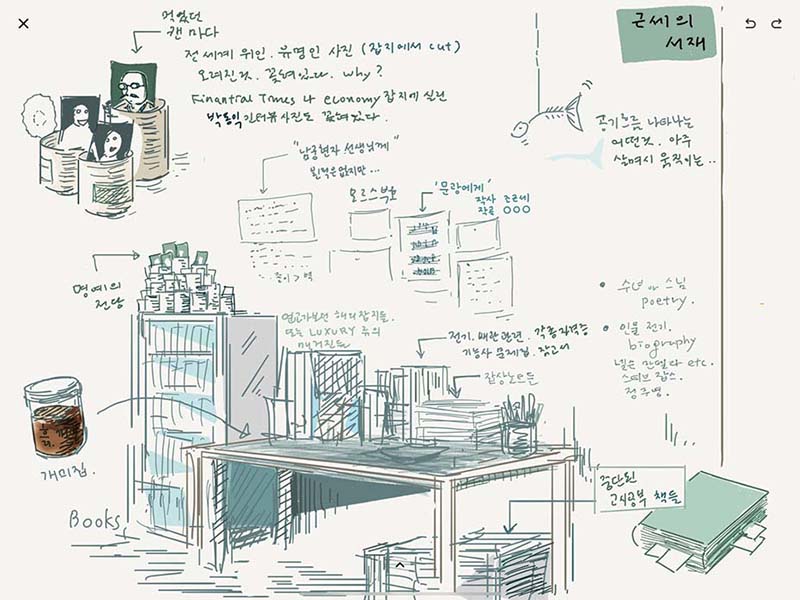 근세의
서재
먹었던
캔 마다
전 세계 위인. 유명인 사진 (잡지에서 cut)
오려진것. 꽂혀있다. Why?
Finantial Times 나 economy 잡지에 실린
박동익 인터뷰 사진도 꽂혀있다.
공기흐름 나타나는
어떤것. 아주
살며시 움직이는..
"남궁현자 선생님께"
뵌적은 없지만...
모르스부호
"문광에게"
작사 오근세
작곡 OOO
명예의
전당
수년 or 스님
poetry.
인물 전기.
biography
넬슨 만델라 etc.
스티브 잡스.
정주영.
해외잡지들.
또는 LUXURY 류의
매거진들
전기. 배관 관련. 각종 자격증
기능사 문제집. 참고서
잡상노트들
개미집.
Books
중단된
고시공부 책들